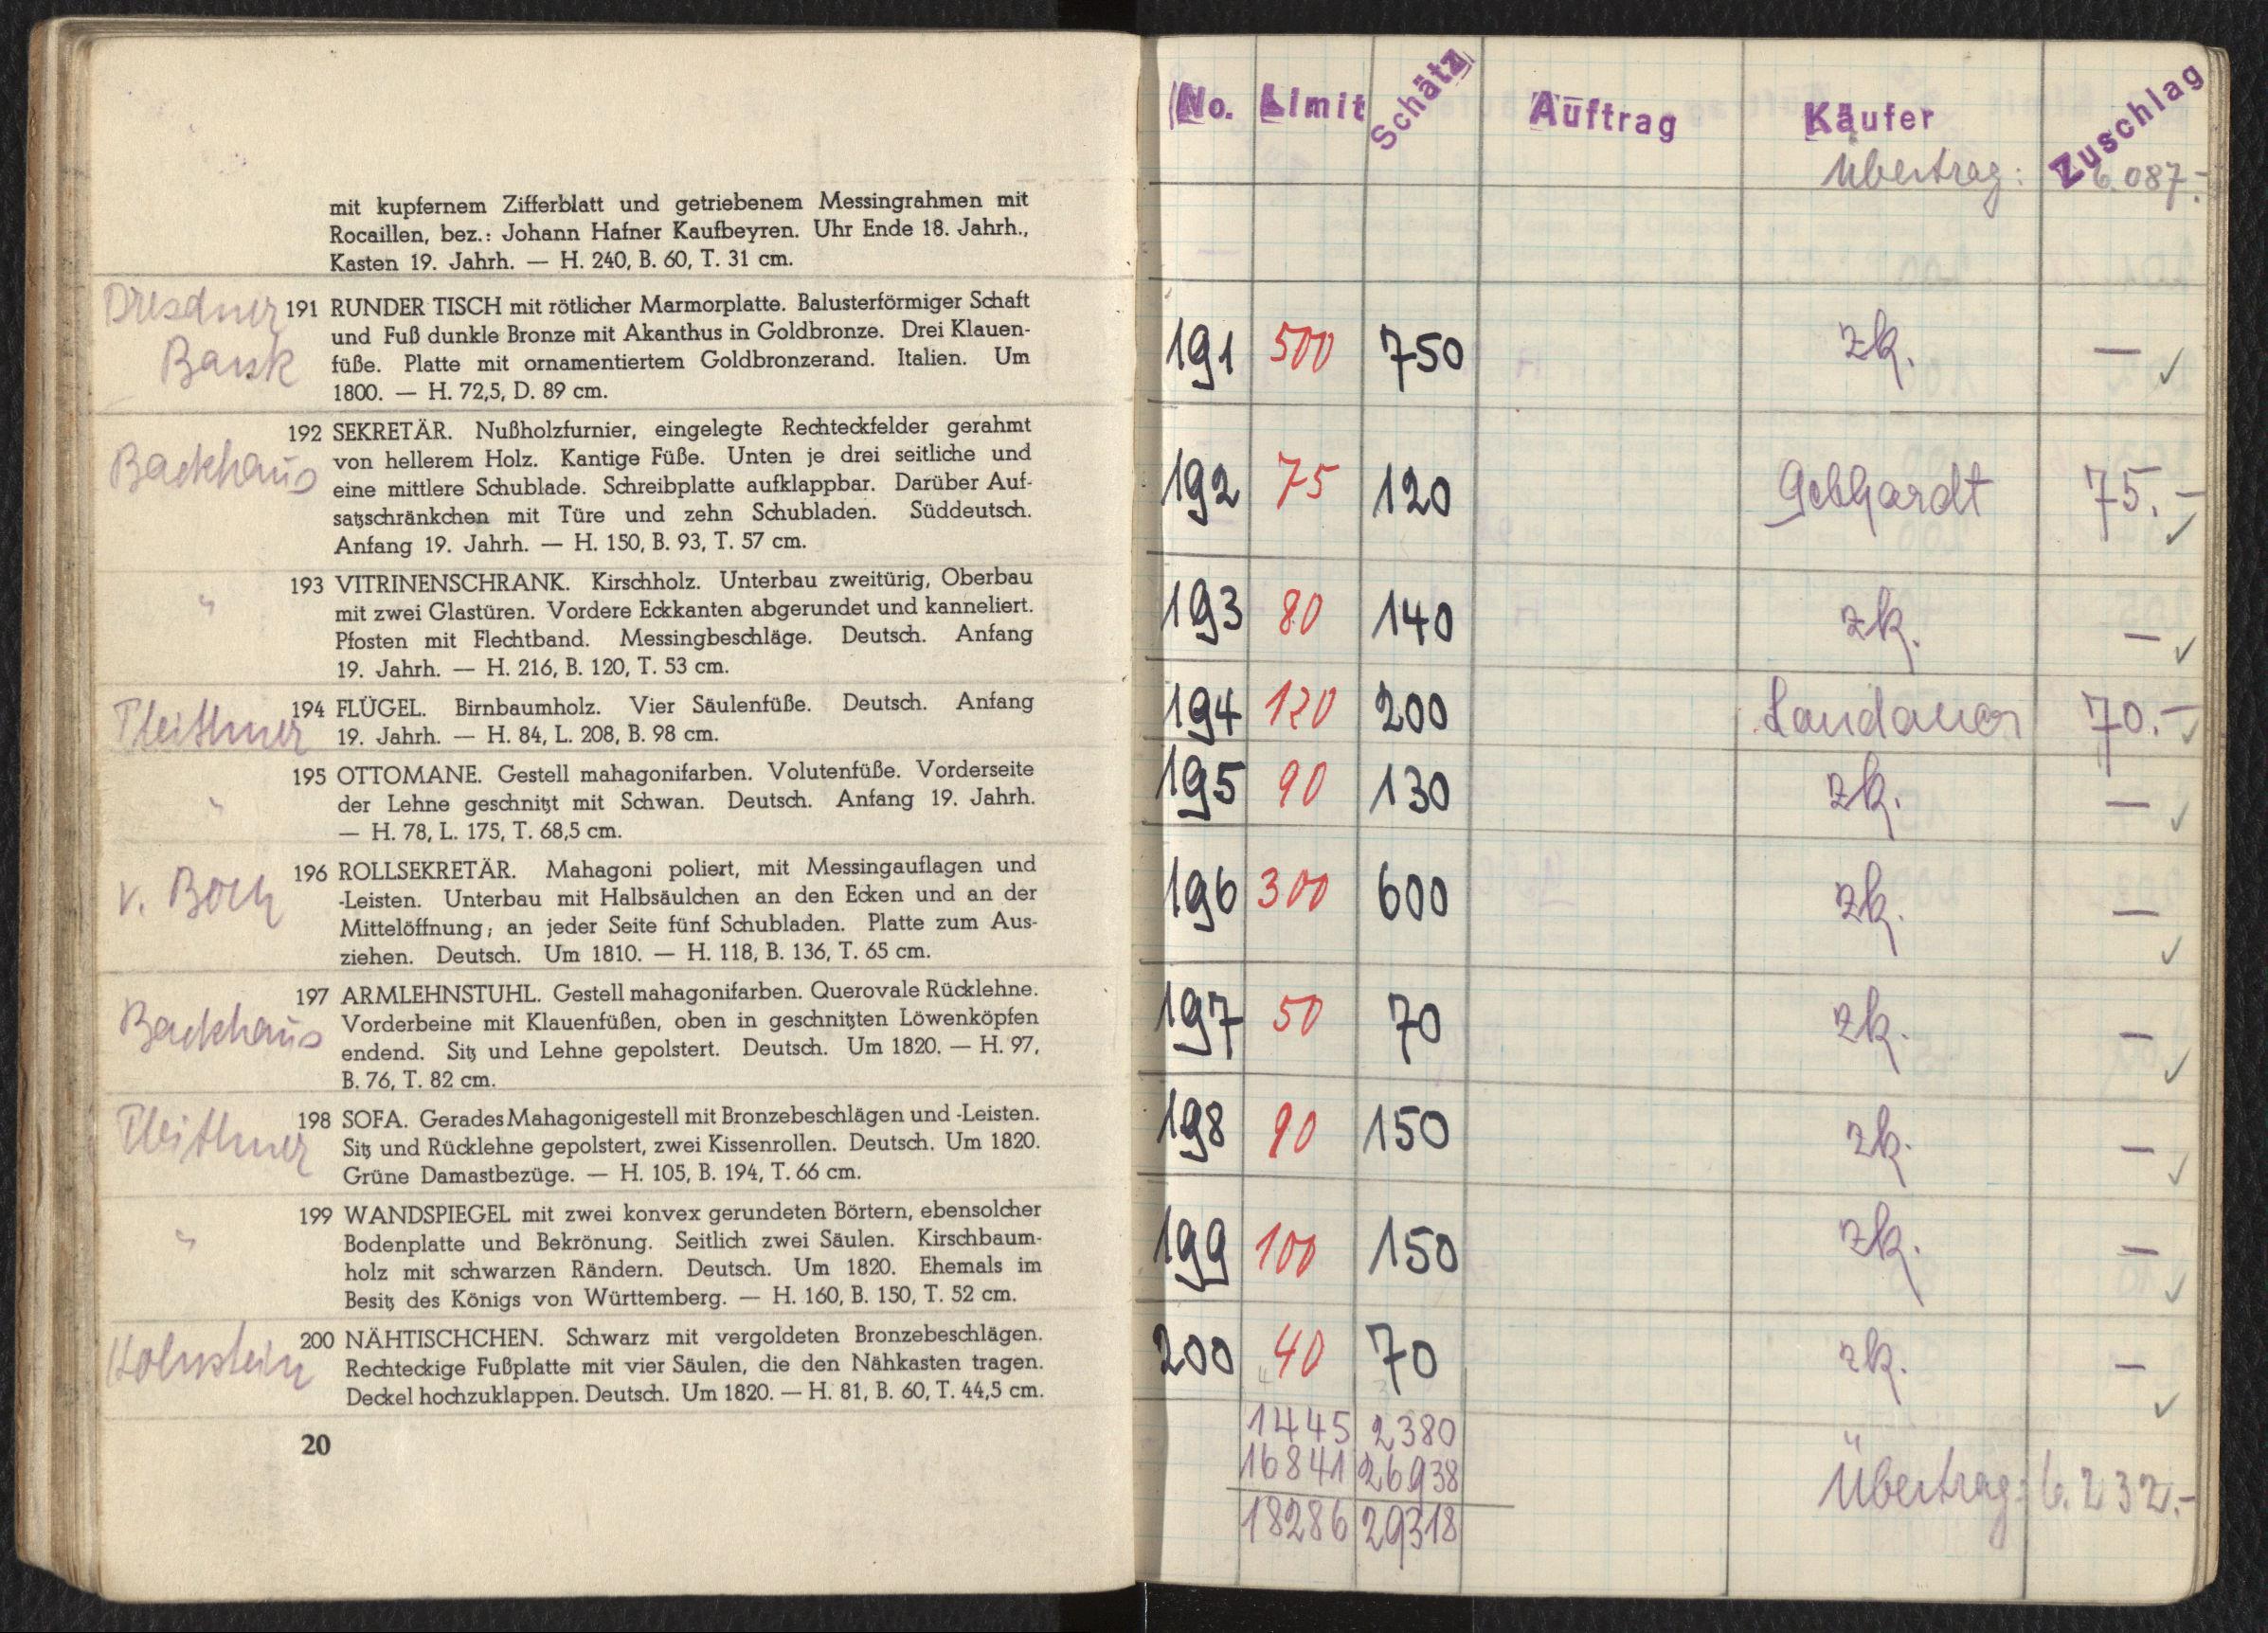 mit kupfernem Zifferblatt und getriebenem Messingrahmen mit
Rocaillen, bez.: Johann Hafner Kaufbeyren. Uhr Ende 18. Jahrh.,
Kasten 19. Jahrh. — H. 240, B. 60, T. 31 cm.
Dresdner
Bank
191 RUNDER TISCH mit rötlicher Marmorplatte. Balusterförmiger Schaft
und Fuß dunkle Bronze mit Akanthus in Goldbronze. Drei Klauen-
füße. Platte mit ornamentiertem Goldbronzerand. Italien. Um
1800. — H. 72,5, D. 89 cm.
Backhaus
192 SEKRETÄR. Nußholzfurnier, eingelegte Rechteckfelder gerahmt
von hellerem Holz. Kantige Füße. Unten je drei seitliche und
eine mittlere Schublade. Schreibplatte aufklappbar. Darüber Auf-
satzschränkchen mit Türe und zehn Schubladen. Süddeutsch.
Anfang 19. Jahrh. — H. 150, B. 93, T. 57 cm.
"
193 VITRINENSCHRANK. Kirschholz. Unterbau zweitürig, Oberbau
mit zwei Glastüren. Vordere Eckkanten abgerundet und kanneliert.
Pfosten mit Flechtband. Messingbeschläge. Deutsch. Anfang
19. Jahrh. — H. 216, B. 120, T. 53 cm.
194 FLÜGEL. Birnbaumholz. Vier Säulenfüße. Deutsch. Anfang
19. Jahrh. — H. 84, L. 208, B. 98 cm.
"
195 OTTOMANE. Gestell mahagonifarben. Volutenfüße. Vorderseite
der Lehne geschnitzt mit Schwan. Deutsch. Anfang 19. Jahrh.
— H. 78, L. 175, T. 68,5 cm.
v. Boch
196 ROLLSEKRETÄR. Mahagoni poliert, mit Messingauflagen und
-Leisten. Unterbau mit Halbsäulchen an den Ecken und an der
Mittelöffnung; an jeder Seite fünf Schubladen. Platte zum Aus-
ziehen. Deutsch. Um 1810. — H. 118, B. 136, T. 65 cm.
Backhaus
197 ARMLEHNSTUHL. Gestell mahagonifarben. Querovale Rücklehne.
Vorderbeine mit Klauenfüßen, oben in geschnitzten Löwenköpfen
endend. Sitz und Lehne gepolstert. Deutsch. Um 1820. — H. 97,
B. 76, T. 82 cm.
198 SOFA. Gerades Mahagonigestell mit Bronzebeschlägen und -Leisten.
Sitz und Rücklehne gepolstert, zwei Kissenrollen. Deutsch. Um 1820.
Grüne Damastbezüge. — H. 105, B. 194, T. 66 cm.
"
199 WANDSPIEGEL mit zwei konvex gerundeten Börtern, ebensolcher
Bodenplatte und Bekrönung. Seitlich zwei Säulen. Kirschbaum-
holz mit schwarzen Rändern. Deutsch. Um 1820. Ehemals im
Besitz des Königs von Württemberg. — H. 160, B. 150, T. 52 cm.
Holnstein
200 NÄHTISCHCHEN. Schwarz mit vergoldeten Bronzebeschlägen.
Rechteckige Fußplatte mit vier Säulen, die den Nähkasten tragen.
Deckel hochzuklappen. Deutsch. Um 1820. — H. 81, B. 60, T. 44,5 cm.
20
No. Limit Schätz Auftrag Käufer Zuschlag
Übertrag: 6.087.-
191 500 750 zk. — ✓
192 75 120 Gebhardt 75.- ✓
193 80 140 zk. — ✓
194 120 200 Landauer 70.- ✓
195 90 130 zk. — ✓
196 300 600 zk. — ✓
197 50 70 zk. — ✓
198 90 150 zk. — ✓
199 100 150 zk. — ✓
200 40 70 zk. — ✓
1445 2380
16841 26938
18286 29318
Übertrag: 6.232.-